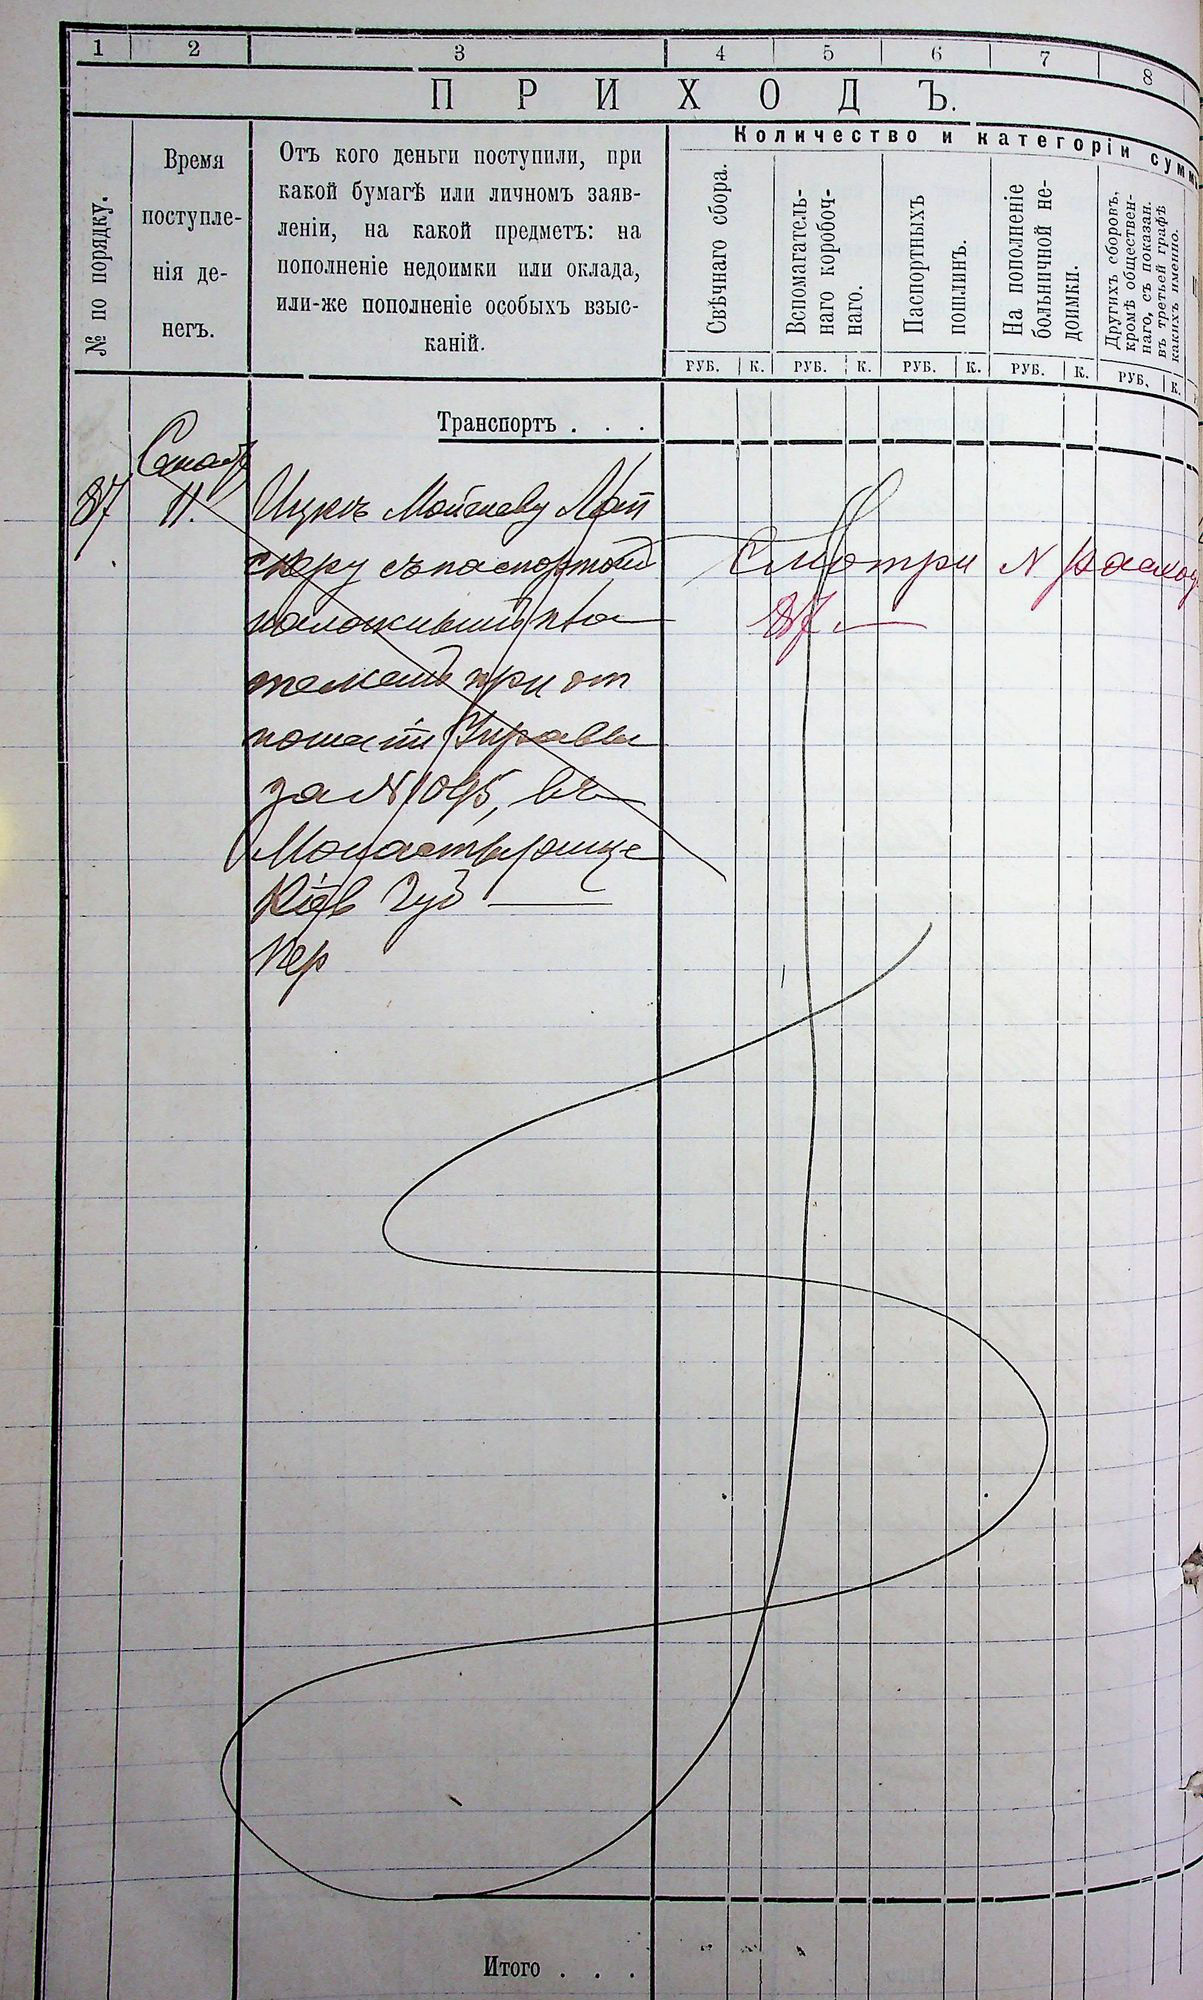 1 2 3 4 5 6 7 8
ПРИХОДЪ.
№ по порядку.
Время
поступле-
нія де-
негъ.
Отъ кого деньги поступили, при
какой бумагѣ или личномъ заяв-
леніи, на какой предметъ: на
пополненіе недоимки или оклада,
или-же пополненіе особыхъ взыс-
каній.
Количество и категоріи сумм
Свѣчнаго сбора.
Вспомагатель-
наго коробоч-
наго.
Паспортныхъ
пошлинъ.
На пополненіе
больничной не-
доимки.
Другихъ сборовъ,
кромѣ обществен-
наго, съ показан.
въ третьей графѣ
какихъ именно.
РУБ. К. РУБ. К. РУБ. К. РУБ. К. РУБ. К.
Транспортъ . . .
87 11. Ицкъ Мойсееву
съ паспортомъ
наложеннымъ пла
тежемъ при от
Управы
за № 1095, въ
Монастырище
Кіев Губ
Смотри № расход
87
Итого . . .